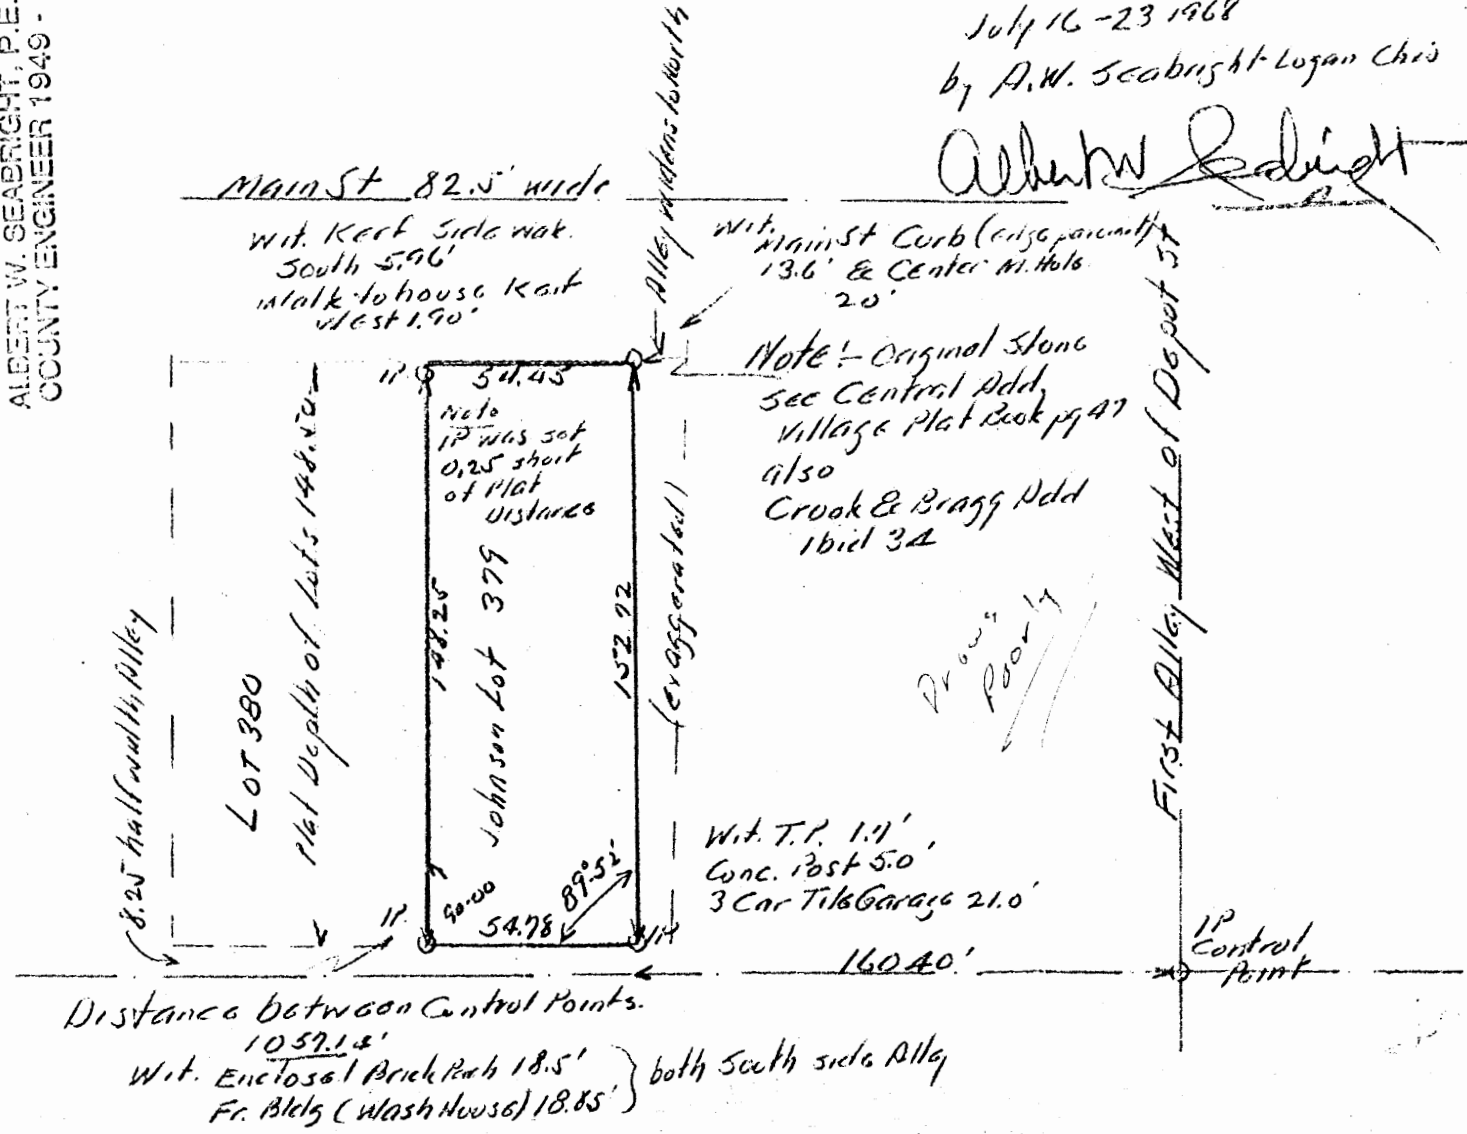 ALBERT W. SEABRIGHT, P.E.
COUNTY ENGINEER 1949 -
July 16-23 1968
by A.W. Seabright Logan Ohio
Albert W Seabright
Main St 82.5' wide
Wit. Kerf Sidewak.
South 5.96'
Walk to house Kerf
West 1.90'
Alley widens to North
Wit.
Main St Curb (edge pavement)
13.6' & Center M. Hole
20'
Note! - Original Stone
see Central Add.
Village Plat Book pg 47
also
Crook & Bragg Add
Ibid 34
First Alley West of Depot St
IP
54.45
Note
IP was set
0.25 short
of Plat
Distance
Plat Depth of Lots 148.50
LOT 380
8.25 half width Alley
148.25
Johnson Lot 379
152.72
(exaggerated)
Drawn
Poorly
Wit. T.P. 1.7'
Conc. Post 5.0'
3 Car Tile Garage 21.0'
IP
90-00
89°52'
54.78
160.40'
IP
Control
Point
Distance between Control Points.
Wit. Enclosed Brick Porch 18.5'
Fr. Bldg (Wash House) 18.85'
both South side Alley